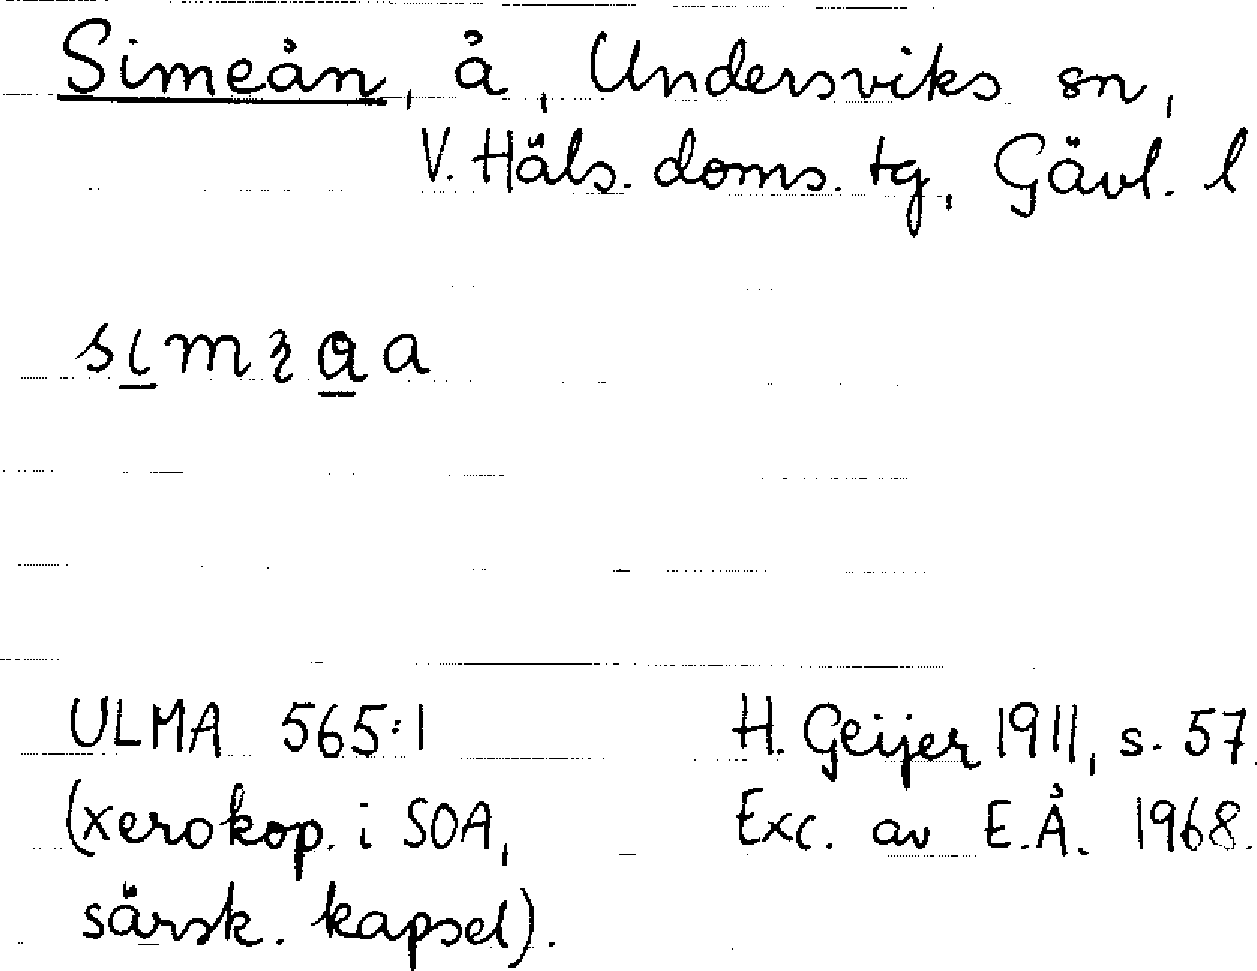 Simeån, å, Undersviks sn,
V. Häls. doms. tg, Gävl. l
ULMA 565:1
(xerokop. i SOA,
särsk. kapsel).
H. Geijer 1911, s. 57.
Exc. av E.Å. 1968.